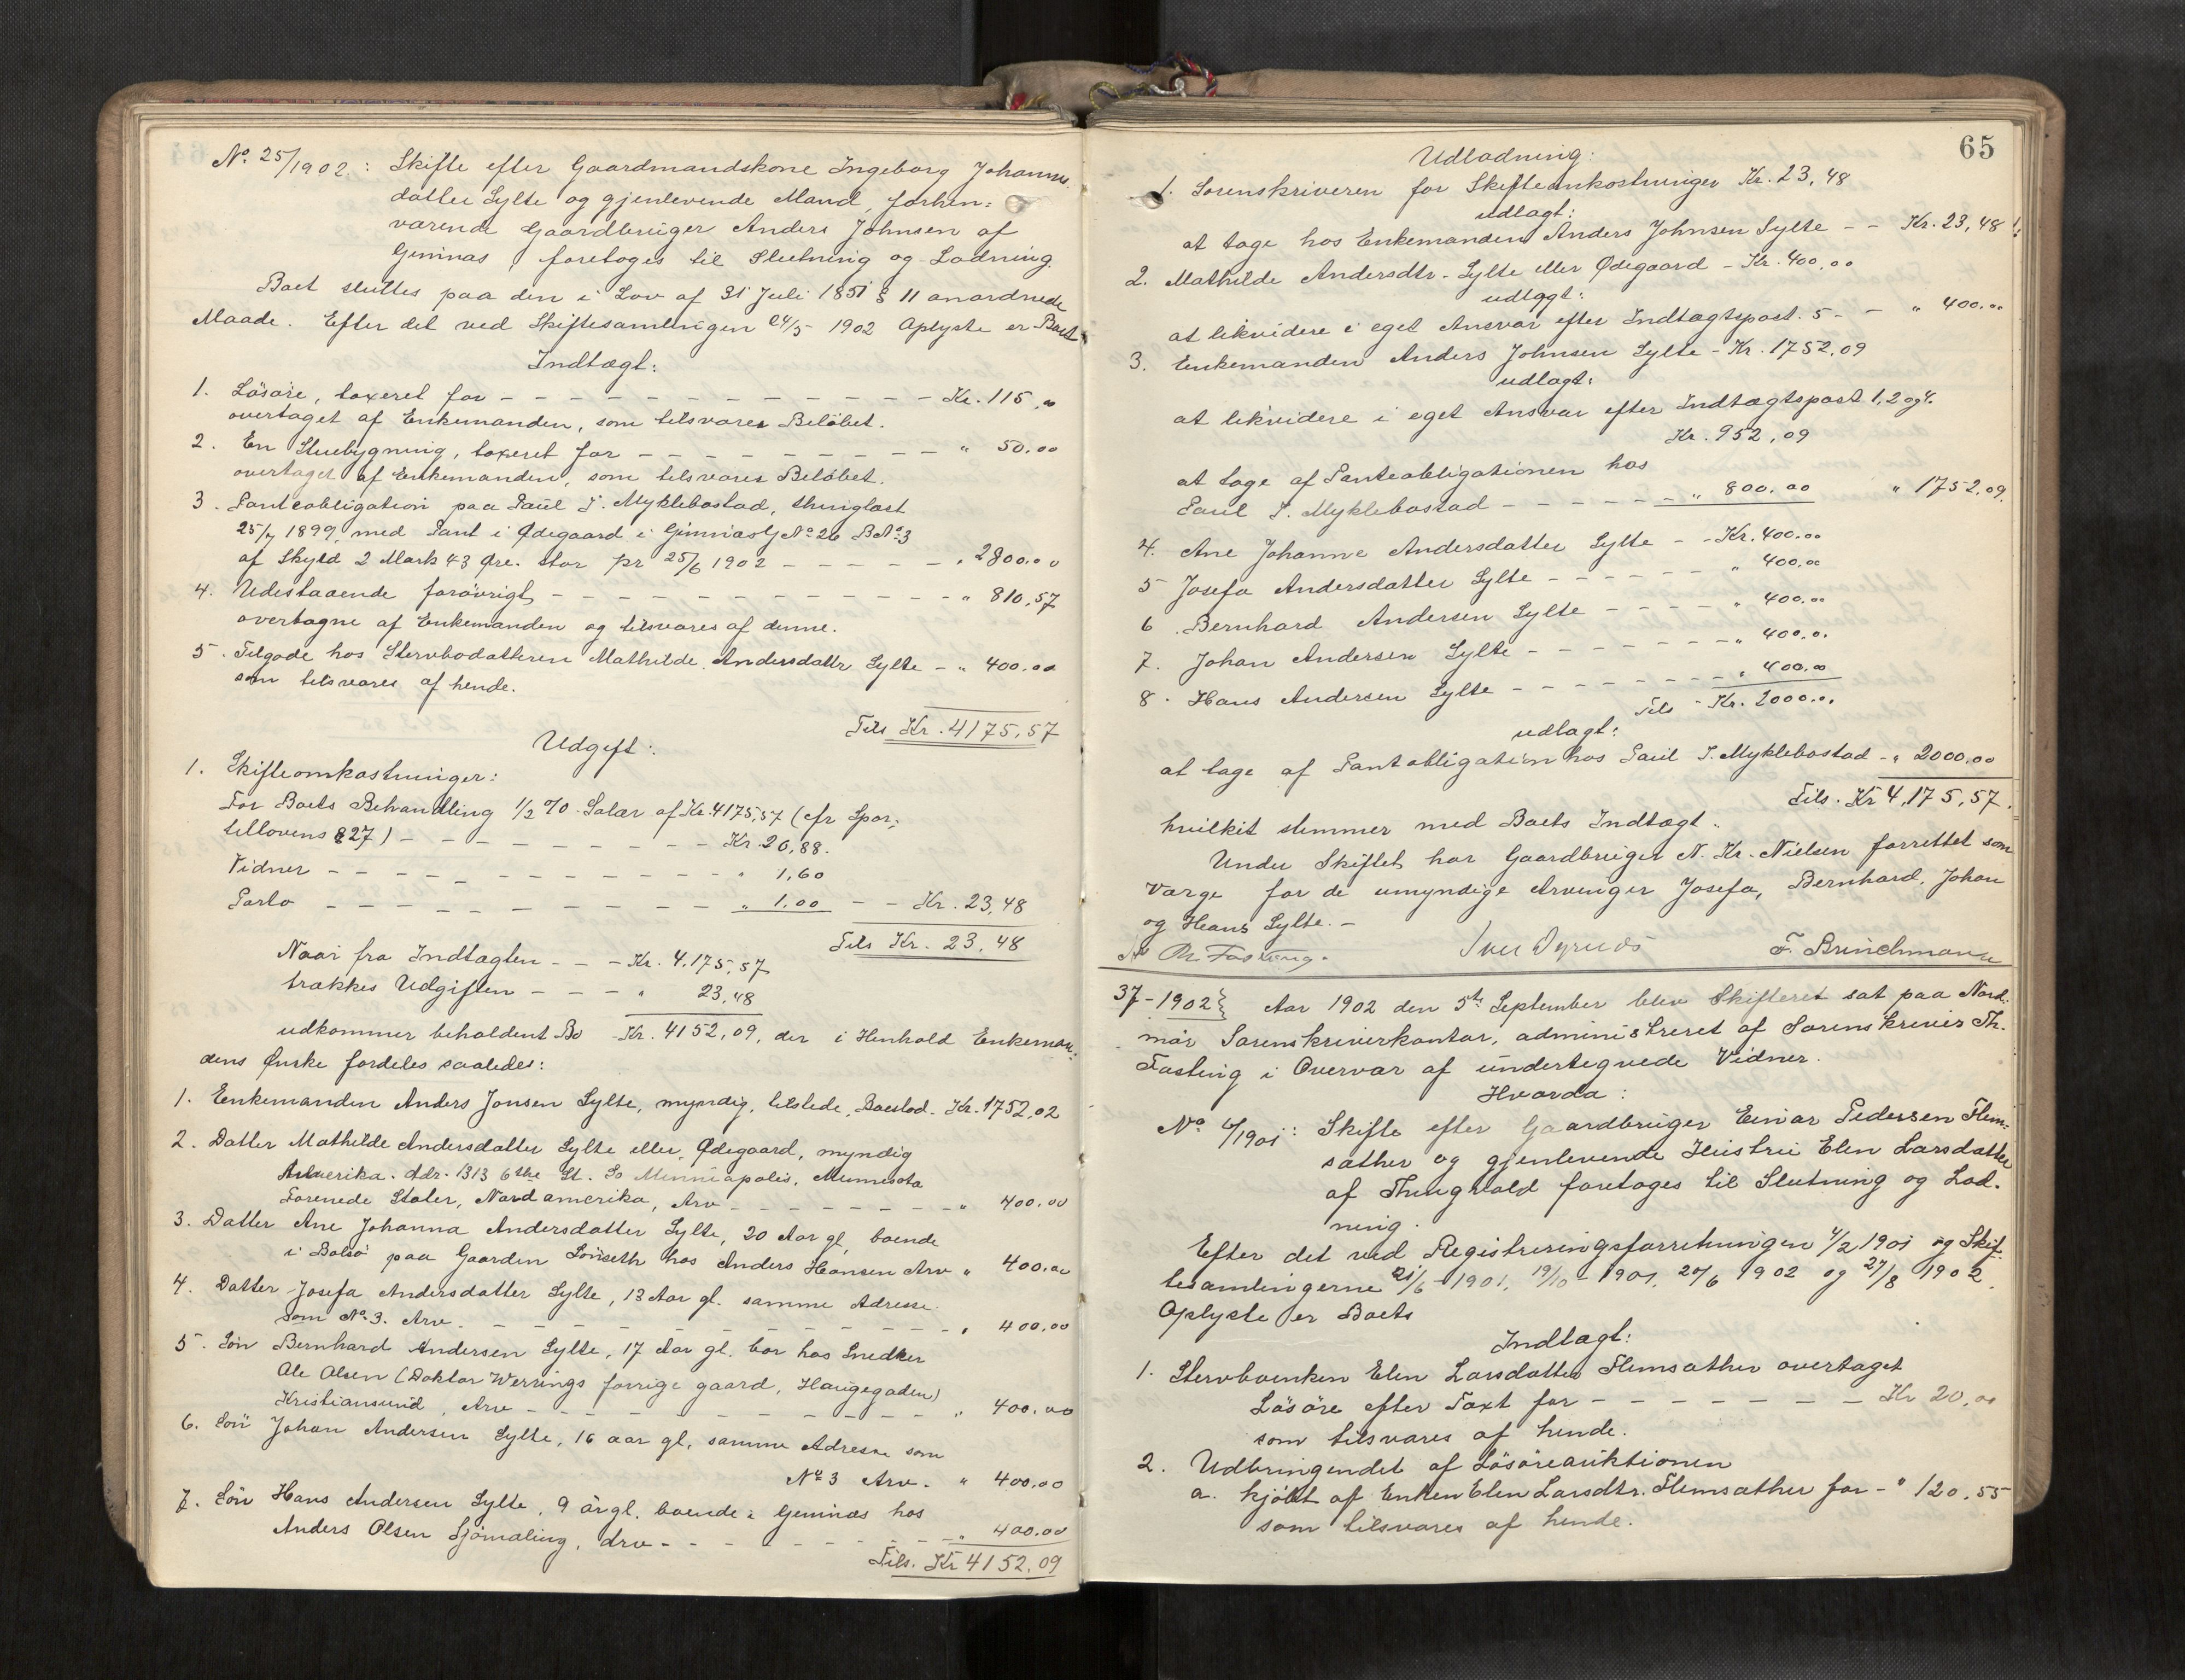 No. 25/1902.: Skifte efter Gaardmandskone Ingeborg Johanne
datter Sylte og gjenlevende Mand, forhen:
værende Gaardbruger Anders Johnsen af
Gimnæs, foretoges til Slutning og Lodning.
Boet sluttes paa den i Lov af 31 Juli 1851 § 11 anordnede
Maade. Efter det ved Skiftesamlingen 24/5 1902 Oplyste er Boets
Indtægt:
1. Løsøre, taxeret for - - - Kr. 115,00
overtaget af Enkemanden, som tilsvarer Beløbet.
2. En Stuebygning, taxeret for - - - " 50.00
overtaget af Enkemanden, som tilsvarer Beløbet.
3. Panteobligation paa Paul J. Myklebostad, thinglæst
25/7 1899, med Pant i Ødegaard i Gimnæs G No 26 B No 3
af Skyld 2 Mark 43 Øre. Stor pr 25/6 1902 - - - " 2800.00
4. Udestaaende forøvrigt - - - " 810,57
overtagne af Enkemanden og tilsvares af denne.
5. Tilgode hos Stervbodatteren Mathilde Andersdattr Sylte - " 400.00
som tilsvares af hende.
Tils Kr. 4175,57
Udgift:
1. Skifteomkostninger:
For Boets Behandling 1/2 % Salær af Kr. 4175,57 (cfr Spor,
tellovens § 27) - - - Kr. 20,88.
Vidner - - - " 1,60
Porto - - - " 1.00 - - Kr. 23,48
Tils Kr. 23,48
Naar fra Indtægten - - - Kr. 4.175,57
trækkes Udgiften - - - " 23,48
udkommer beholdent Bo - Kr. 4152,09, der i Henhold Enkeman-
dens Ønske fordeles saaledes:
1. Enkemanden Anders Jonsen Sylte, myndig, tilstede, Boeslod - Kr. 1752,02
2. Datter Mathilde Andersdatter Sylte eller Ødegaard, myndig
Amerika. Adr. 1313 6the St. So Minniapolis, Munnesota
Forenede Stater, Nordamerika, Arv - - - " 400.00
3. Datter Ane Johanna Andersdatter Sylte, 20 Aar gl, boende
i Bolsø paa Gaarden Lønseth hos Anders Hansen Arv " 400.00
4. Datter Josefa Andersdatter Sylte, 13 Aar gl. samme Adresse
som No 3. Arv. - - - " 400.00
5. Søn Bernhard Andersen Sylte, 17 Aar gl. bor hos Snedker
Ole Olsen (Doktor Werrings forrige gaard, Haugegaden)
Kristiansund, Arv - - - " 400.00
6. Søn Johan Andersen Sylte, 16 aar gl, samme Adresse som
No 3 Arv. " 400.00
7. Søn Hans Andersen Sylte, 9 år gl. boende i Gimnæs hos
Anders Olsen Sjømæling, Arv - - - " 400.00
Tils. Kr 4152.09
65
Udlodning:
1. Sorenskriveren for Skifteomkostninger Kr. 23,48
udlagt:
at tage hos Enkemanden Anders Johnsen Sylte - - Kr. 23,48
2. Mathilde Andersdtr. Sylte eller Ødegaard - Kr. 400.00
udlagt:
at likvidere i eget Ansvar efter Indtægtspost. 5 - - " 400.00
3. Enkemanden Anders Johnsen Sylte - Kr. 1752.09
udlagt:
at likvidere i eget Ansvar efter Indtægtspost 1, 2 og 4.
Kr. 952,09
at tage af Panteobligationen hos
Paul J. Myklebostad - - - " 800.00 " 1752,09.
4. Ane Johanne Andersdatter Sylte - - Kr. 400.00
5 Josefa Andersdatter Sylte - - - " 400.00
6. Bernhard Andersen Sylte - - - " 400.00
7. Johan Andersen Sylte - - - " 400.0.
8. Hans Andersen Sylte - - - " 400.00
Tils - Kr. 2000.00
udlagt:
at tage af Pantobligation hos Paul J. Myklebostad - " 2000.00
Tils. Kr 4,175,57.
hvilket stemmer med Boets Indtægt.
Under Skiftet har Gaardbruger N. Kr. Nielsen forrettet som
Værge for de umyndige Arvinger Josefa, Bernhard, Johan
og Hans Sylte. -
Th. Fasting. Iver Dyrnæs F. Brinchmann
37-1902} Aar 1902 den 5te September blev Skifteret sat paa Nord-
mør Sorenskriverkontor, administreret af Sorenskriver Th.
Fasting i Overvær af undertegnede Vidner.
Hvorda:
No 4/1901: Skifte efter Gaardbruger Einar Pedersen Flem-
sæther og gjenlevende Hustru Elen Larsdatter
af Thingvold foretages til Slutning og Lod-
ning.
Efter det ved Registreringsforretningen 4/2 1901 og Skif-
tesamlingerne 21/6 - 1901, 19/10 - 1901, 20/6 1902 og 27/8 1902.
Oplyste er Boets
Indtægt:
1. Stervboenken Elen Larsdatter Flemsæther overtaget
Løsøre efter Taxt for - - - Kr 20,00
som tilsvares af hende.
2. Udbringendet af Løsøreauktionen
a. kjøbt af Enken Elen Larsdtr. Flemsæther for - " 120.55
som tilsvares af hende.